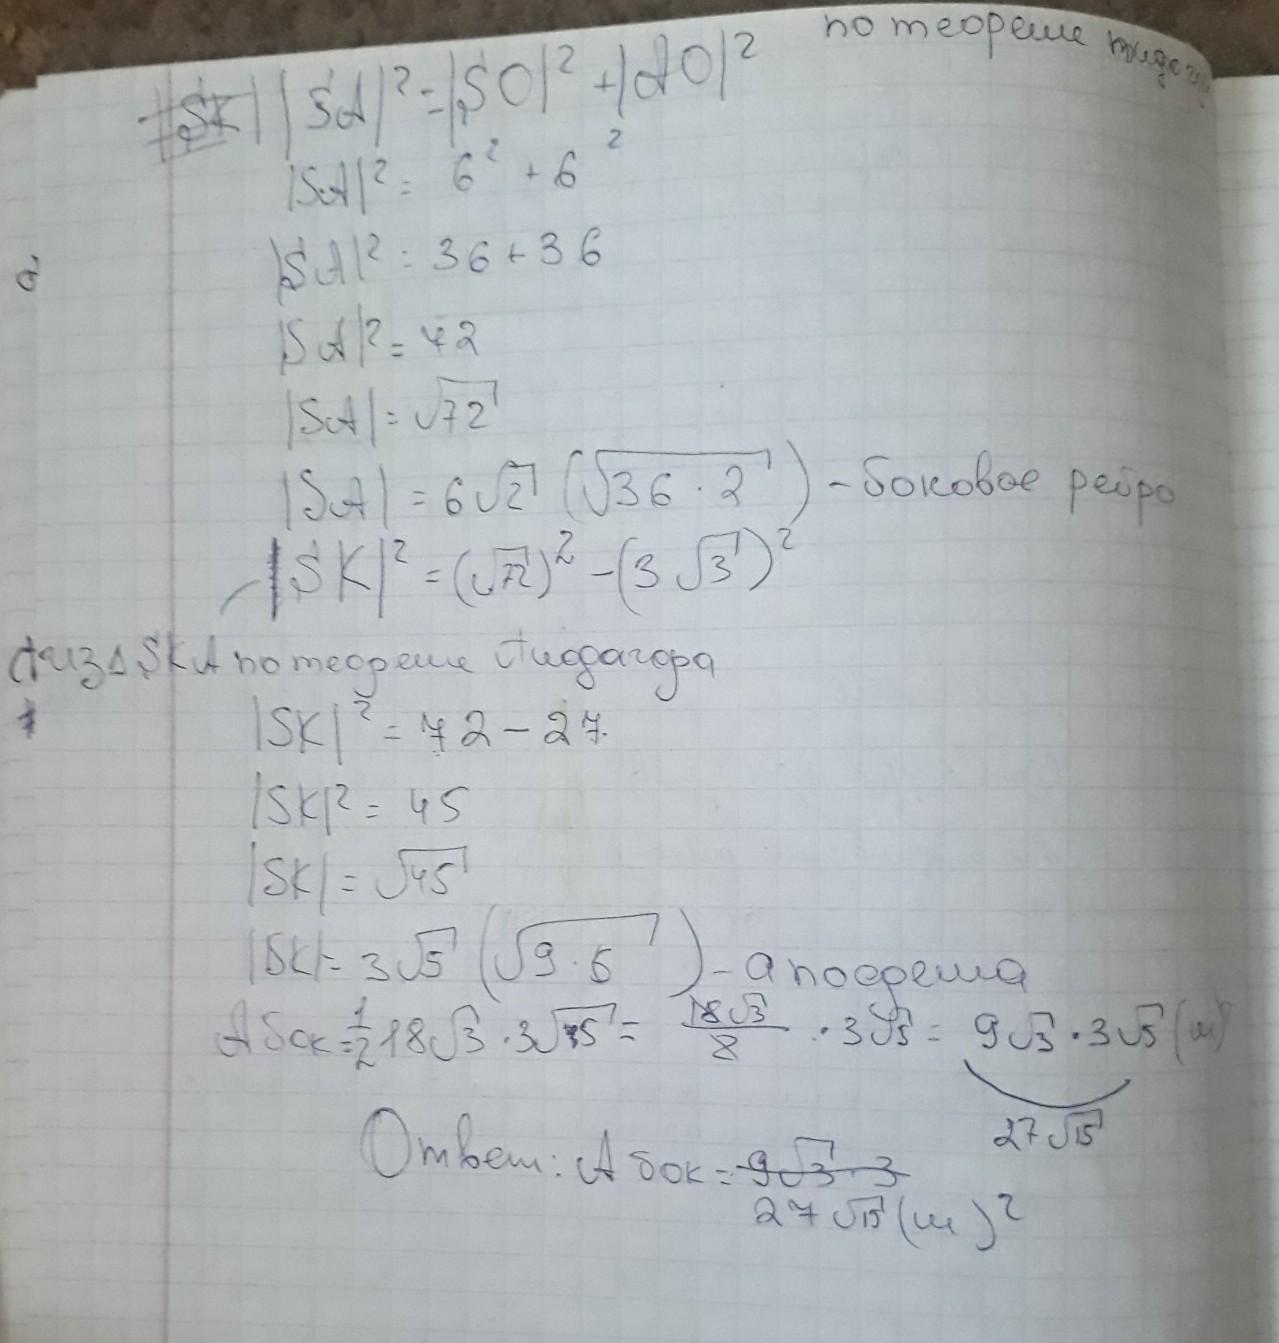 по теореме пифаг
|SK| |SA|² = |SO|² + |AO|²
|SA|² = 6² + 6²
|SA|² = 36 + 36
|SA|² = 72
|SA| = √72
|SA| = 6√2 (√36 · 2) - боковое ребро
|SK|² = (√72)² - (3√3)²
из △ SKA по теореме Пифагора
|SK|² = 72 - 27
|SK|² = 45
|SK| = √45
|SK| = 3√5 (√9 · 5) - апофема
Aбок = 1/2 18√3 · 3√5 = 18√3/2 · 3√5 = 9√3 · 3√5 (м)
27√15
Ответ: Aбок = 9√3 · 3
27√15 (м)²